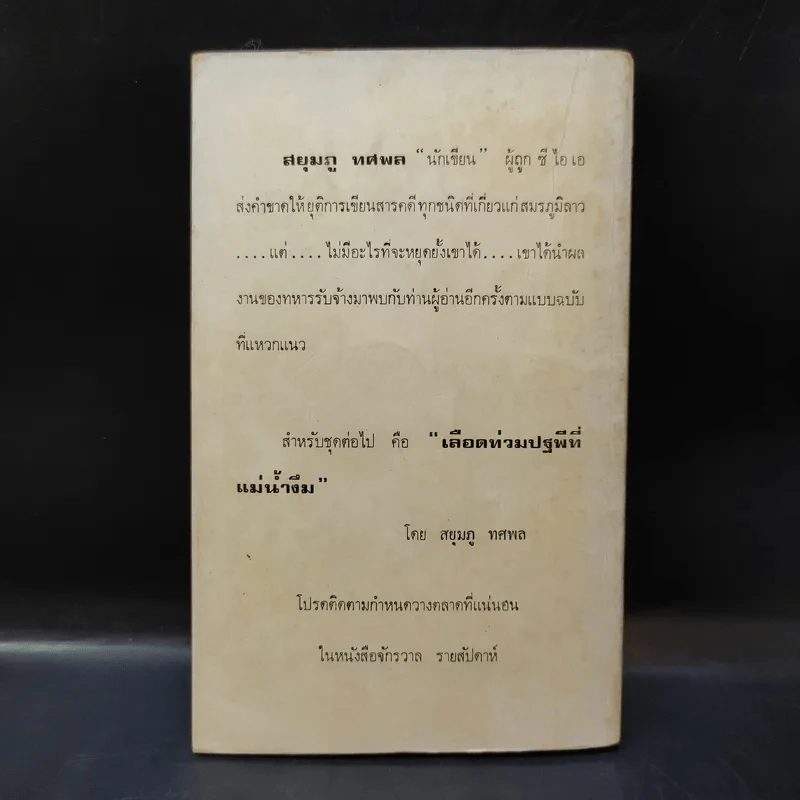 สยุมภู ทศพล “นักเขียน” ผู้ถูก ซี ไอ เอ
ส่งคำขาดให้ยุติการเขียนสารคดีทุกชนิดที่เกี่ยวแก่สมรภูมิลาว
....แต่.... ไม่มีอะไรที่จะหยุดยั้งเขาได้....เขาได้นำผล
งานของทหารรับจ้างมาพบกับท่านผู้อ่านอีกครั้งตามแบบฉบับ
ที่แหวกแนว
สำหรับชุดต่อไป คือ “เลือดท่วมปฐพีที่
แม่น้ำงึม”
โดย สยุมภู ทศพล
โปรดติดตามกำหนดวางตลาดที่แน่นอน
ในหนังสือจักรวาล รายสัปดาห์